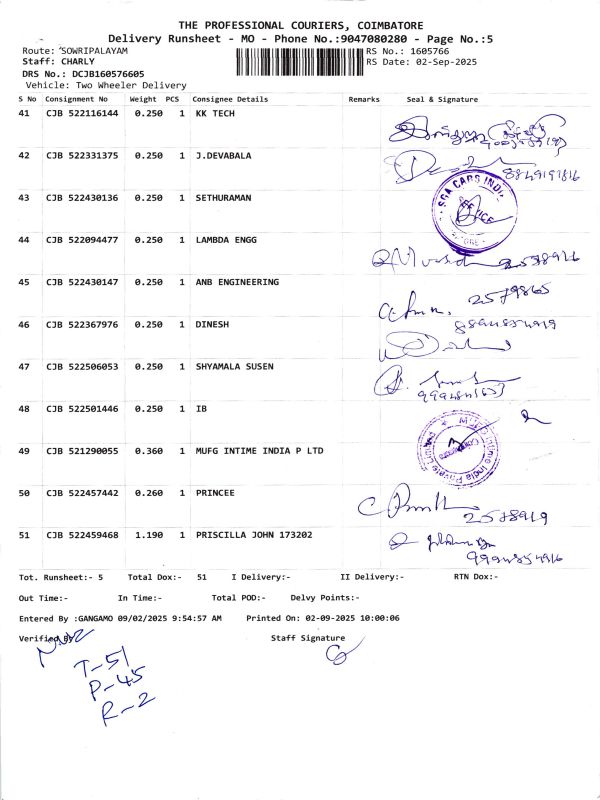 THE PROFESSIONAL COURIERS, COIMBATORE
Delivery Runsheet - MO - Phone No.:9047080280 - Page No.:5
Route: SOWRIPALAYAM RS No.: 1605766
Staff: CHARLY RS Date: 02-Sep-2025
DRS No.: DCJB160576605
Vehicle: Two Wheeler Delivery
S No Consignment No Weight PCS Consignee Details Remarks Seal & Signature
41 CJB 522116144 0.250 1 KK TECH
42 CJB 522331375 0.250 1 J.DEVABALA
43 CJB 522430136 0.250 1 SETHURAMAN
SGA CARS INDIA
44 CJB 522094477 0.250 1 LAMBDA ENGG
45 CJB 522430147 0.250 1 ANB ENGINEERING
2579865
46 CJB 522367976 0.250 1 DINESH
47 CJB 522506053 0.250 1 SHYAMALA SUSEN
48 CJB 522501446 0.250 1 IB
49 CJB 521290055 0.360 1 MUFG INTIME INDIA P LTD
MUFG Intime India Private Limited
50 CJB 522457442 0.260 1 PRINCEE
2578919
51 CJB 522459468 1.190 1 PRISCILLA JOHN 173202
Tot. Runsheet:- 5 Total Dox:- 51 I Delivery:- II Delivery:- RTN Dox:-
Out Time:- In Time:- Total POD:- Delvy Points:-
Entered By :GANGAMO 09/02/2025 9:54:57 AM Printed On: 02-09-2025 10:00:06
Verified By Staff Signature
T-51
P-45
R-2